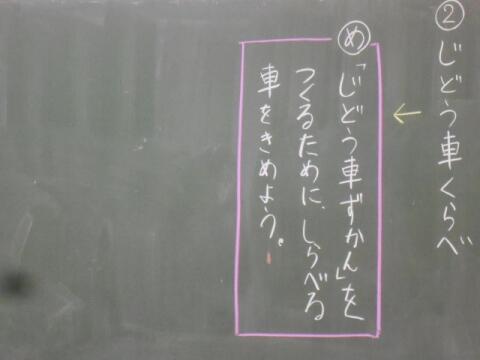 ②じどう車くらべ
め「じどう車ずかん」を
つくるために、しらべる
車をきめよう。